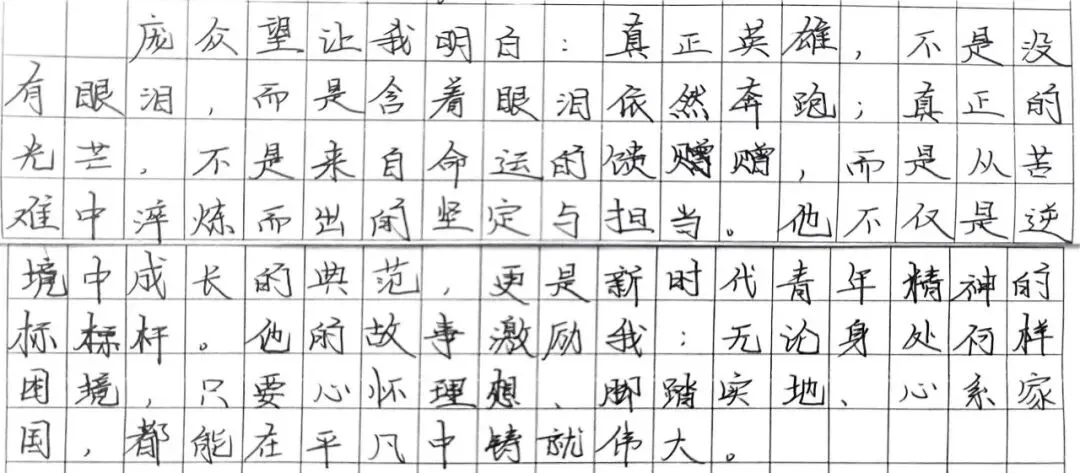 庞众望让我明白：真正英雄，不是没
有眼泪，而是含着眼泪依然奔跑；真正的
光芒，不是来自命运的馈赠赠，而是从苦
难中淬炼而出的坚定与担当。他不仅是逆
境中成长的典范，更是新时代青年精神的
标标杆。他的故事激励我：无论身处何样
困境，只要心怀理想、脚踏实地、心系家
国，都能在平凡中铸就伟大。